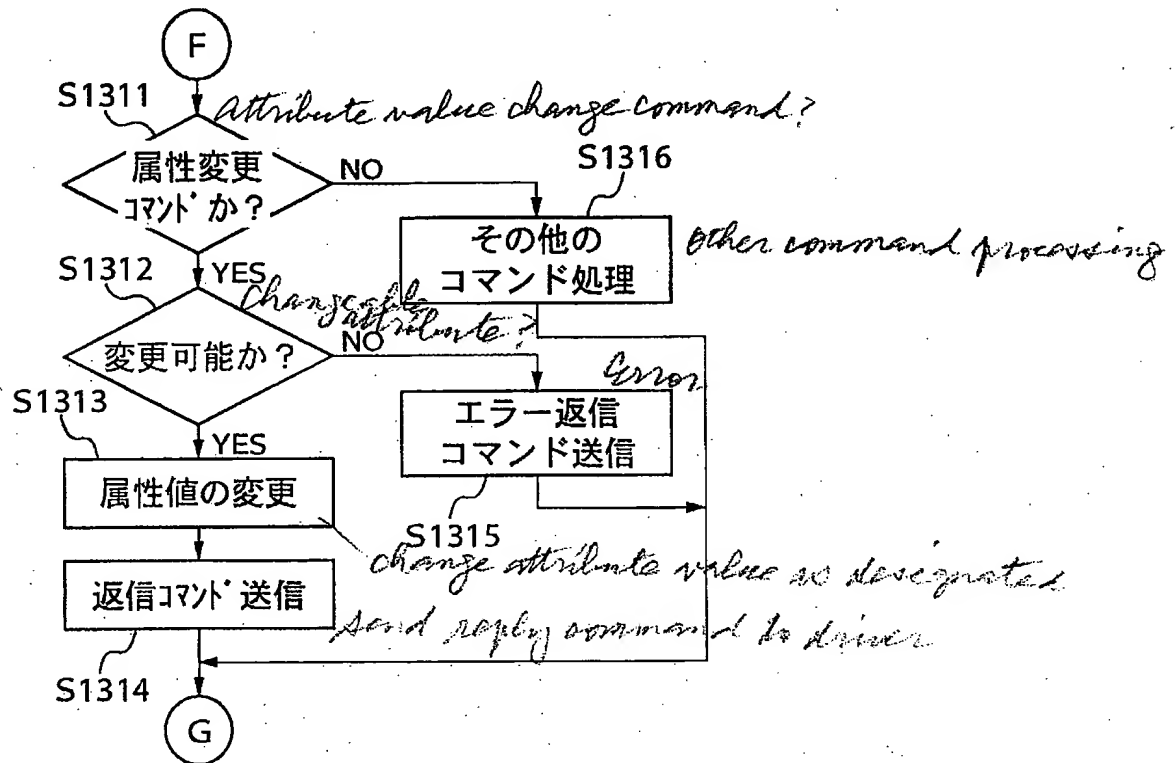 F
S1311
Attribute value change command?
属性変更
ｺﾏﾝﾄﾞか？
NO
S1316
その他の
コマンド処理
Other command processing
S1312
YES
Changeable
attribute?
変更可能か？
NO
Error
エラー返信
コマンド送信
S1315
S1313
YES
属性値の変更
change attribute value as designated
返信ｺﾏﾝﾄﾞ送信
send reply command to driver
S1314
G